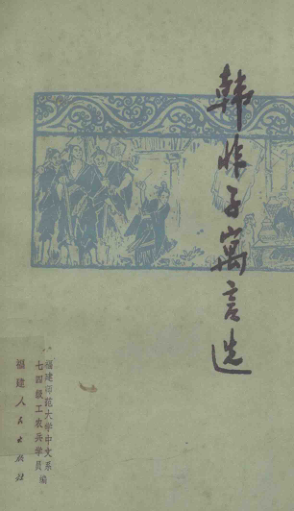 韩非子寓言选
福建师范大学中文系
七四级工农兵学员 编
福建人民出版社